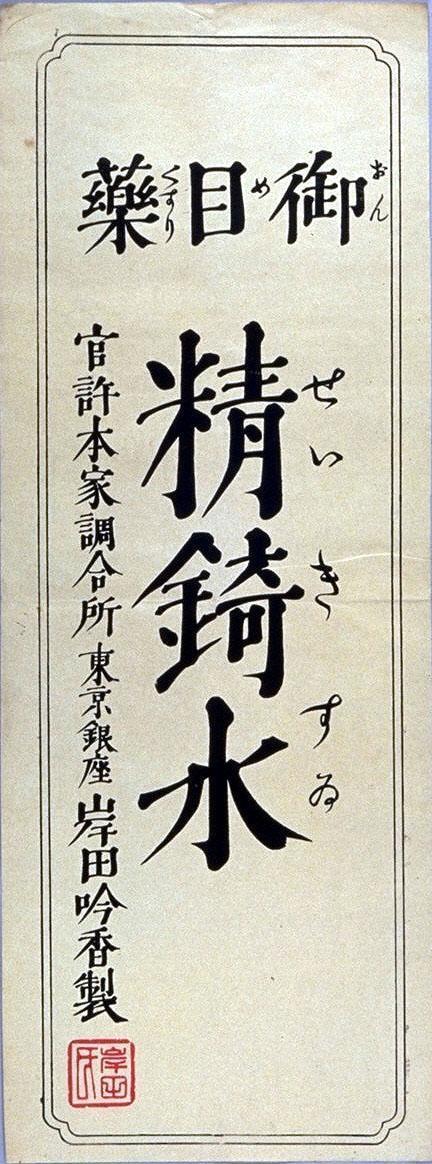 御目藥
おんめくすり
精錡水
せいきすゐ
官許本家調合所東京銀座岸田吟香製
岸田氏